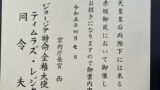 天皇皇后両陛下には来る
赤坂御苑において御催し
お招きになりますので御案内
令和五年四月
宮内庁長官 西
ジョージア特命全権大使
ティムラズ・レジ
同 令 夫